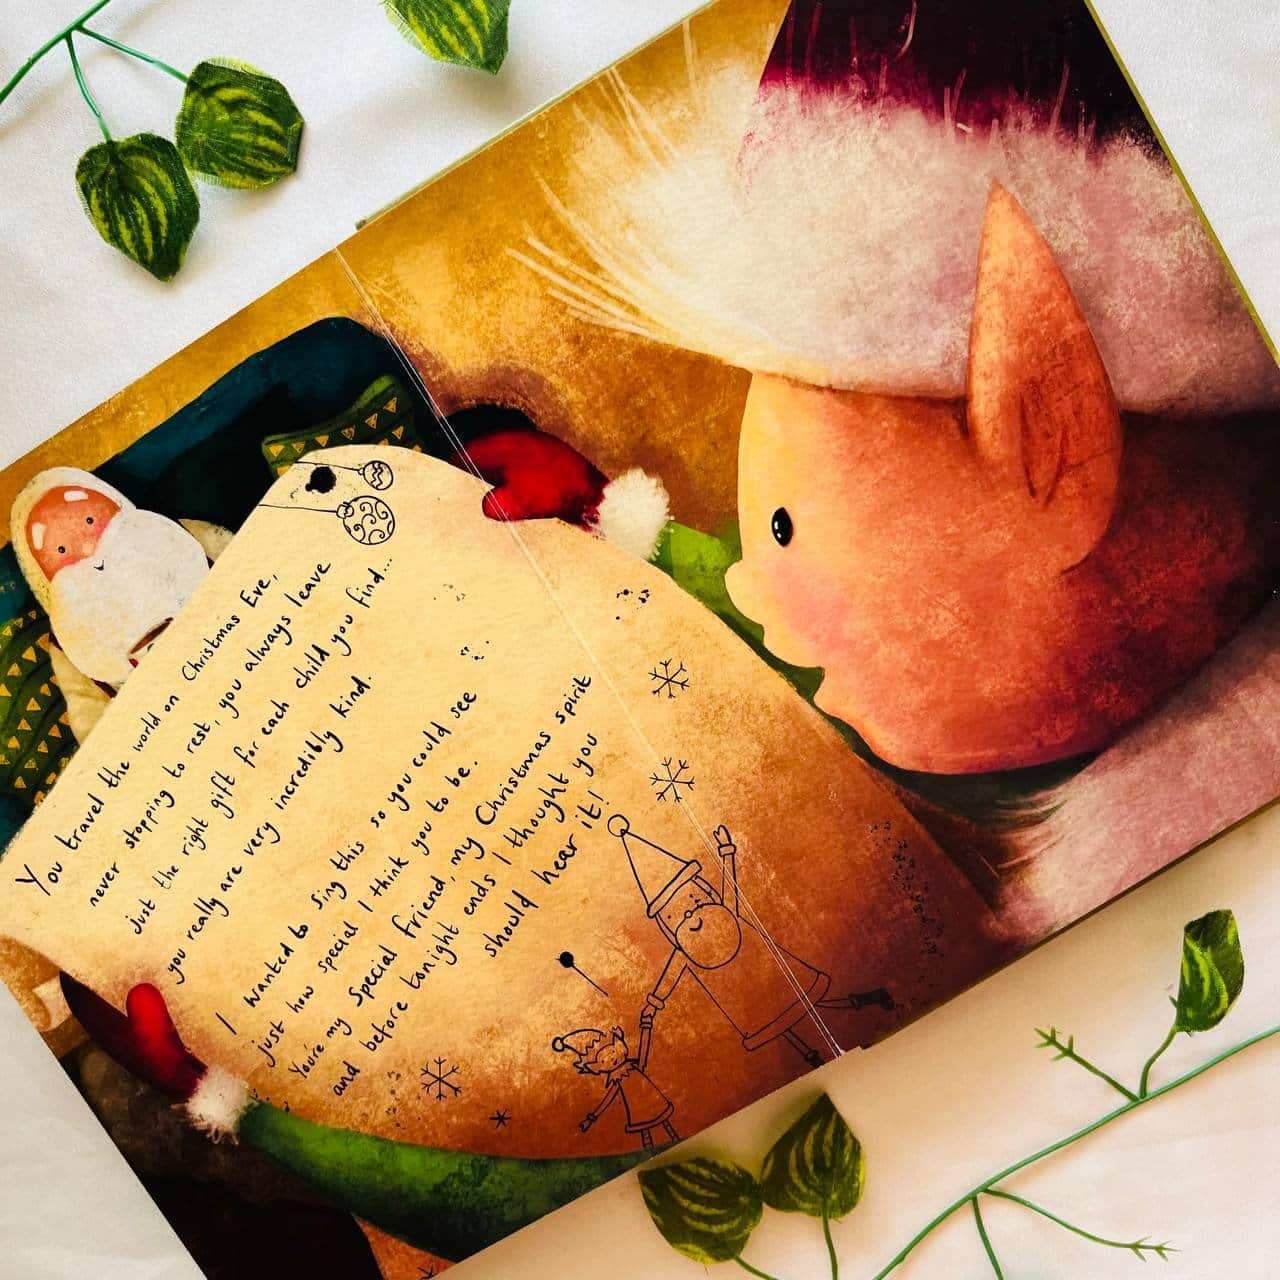 You travel the world on Christmas Eve,
never stopping to rest, you always leave
just the right gift for each child you find...
you really are very incredibly kind.
I wanted to sing this so you could see
just how special I think you to be.
You're my special friend, my Christmas spirit
and before tonight ends I thought you
should hear it!